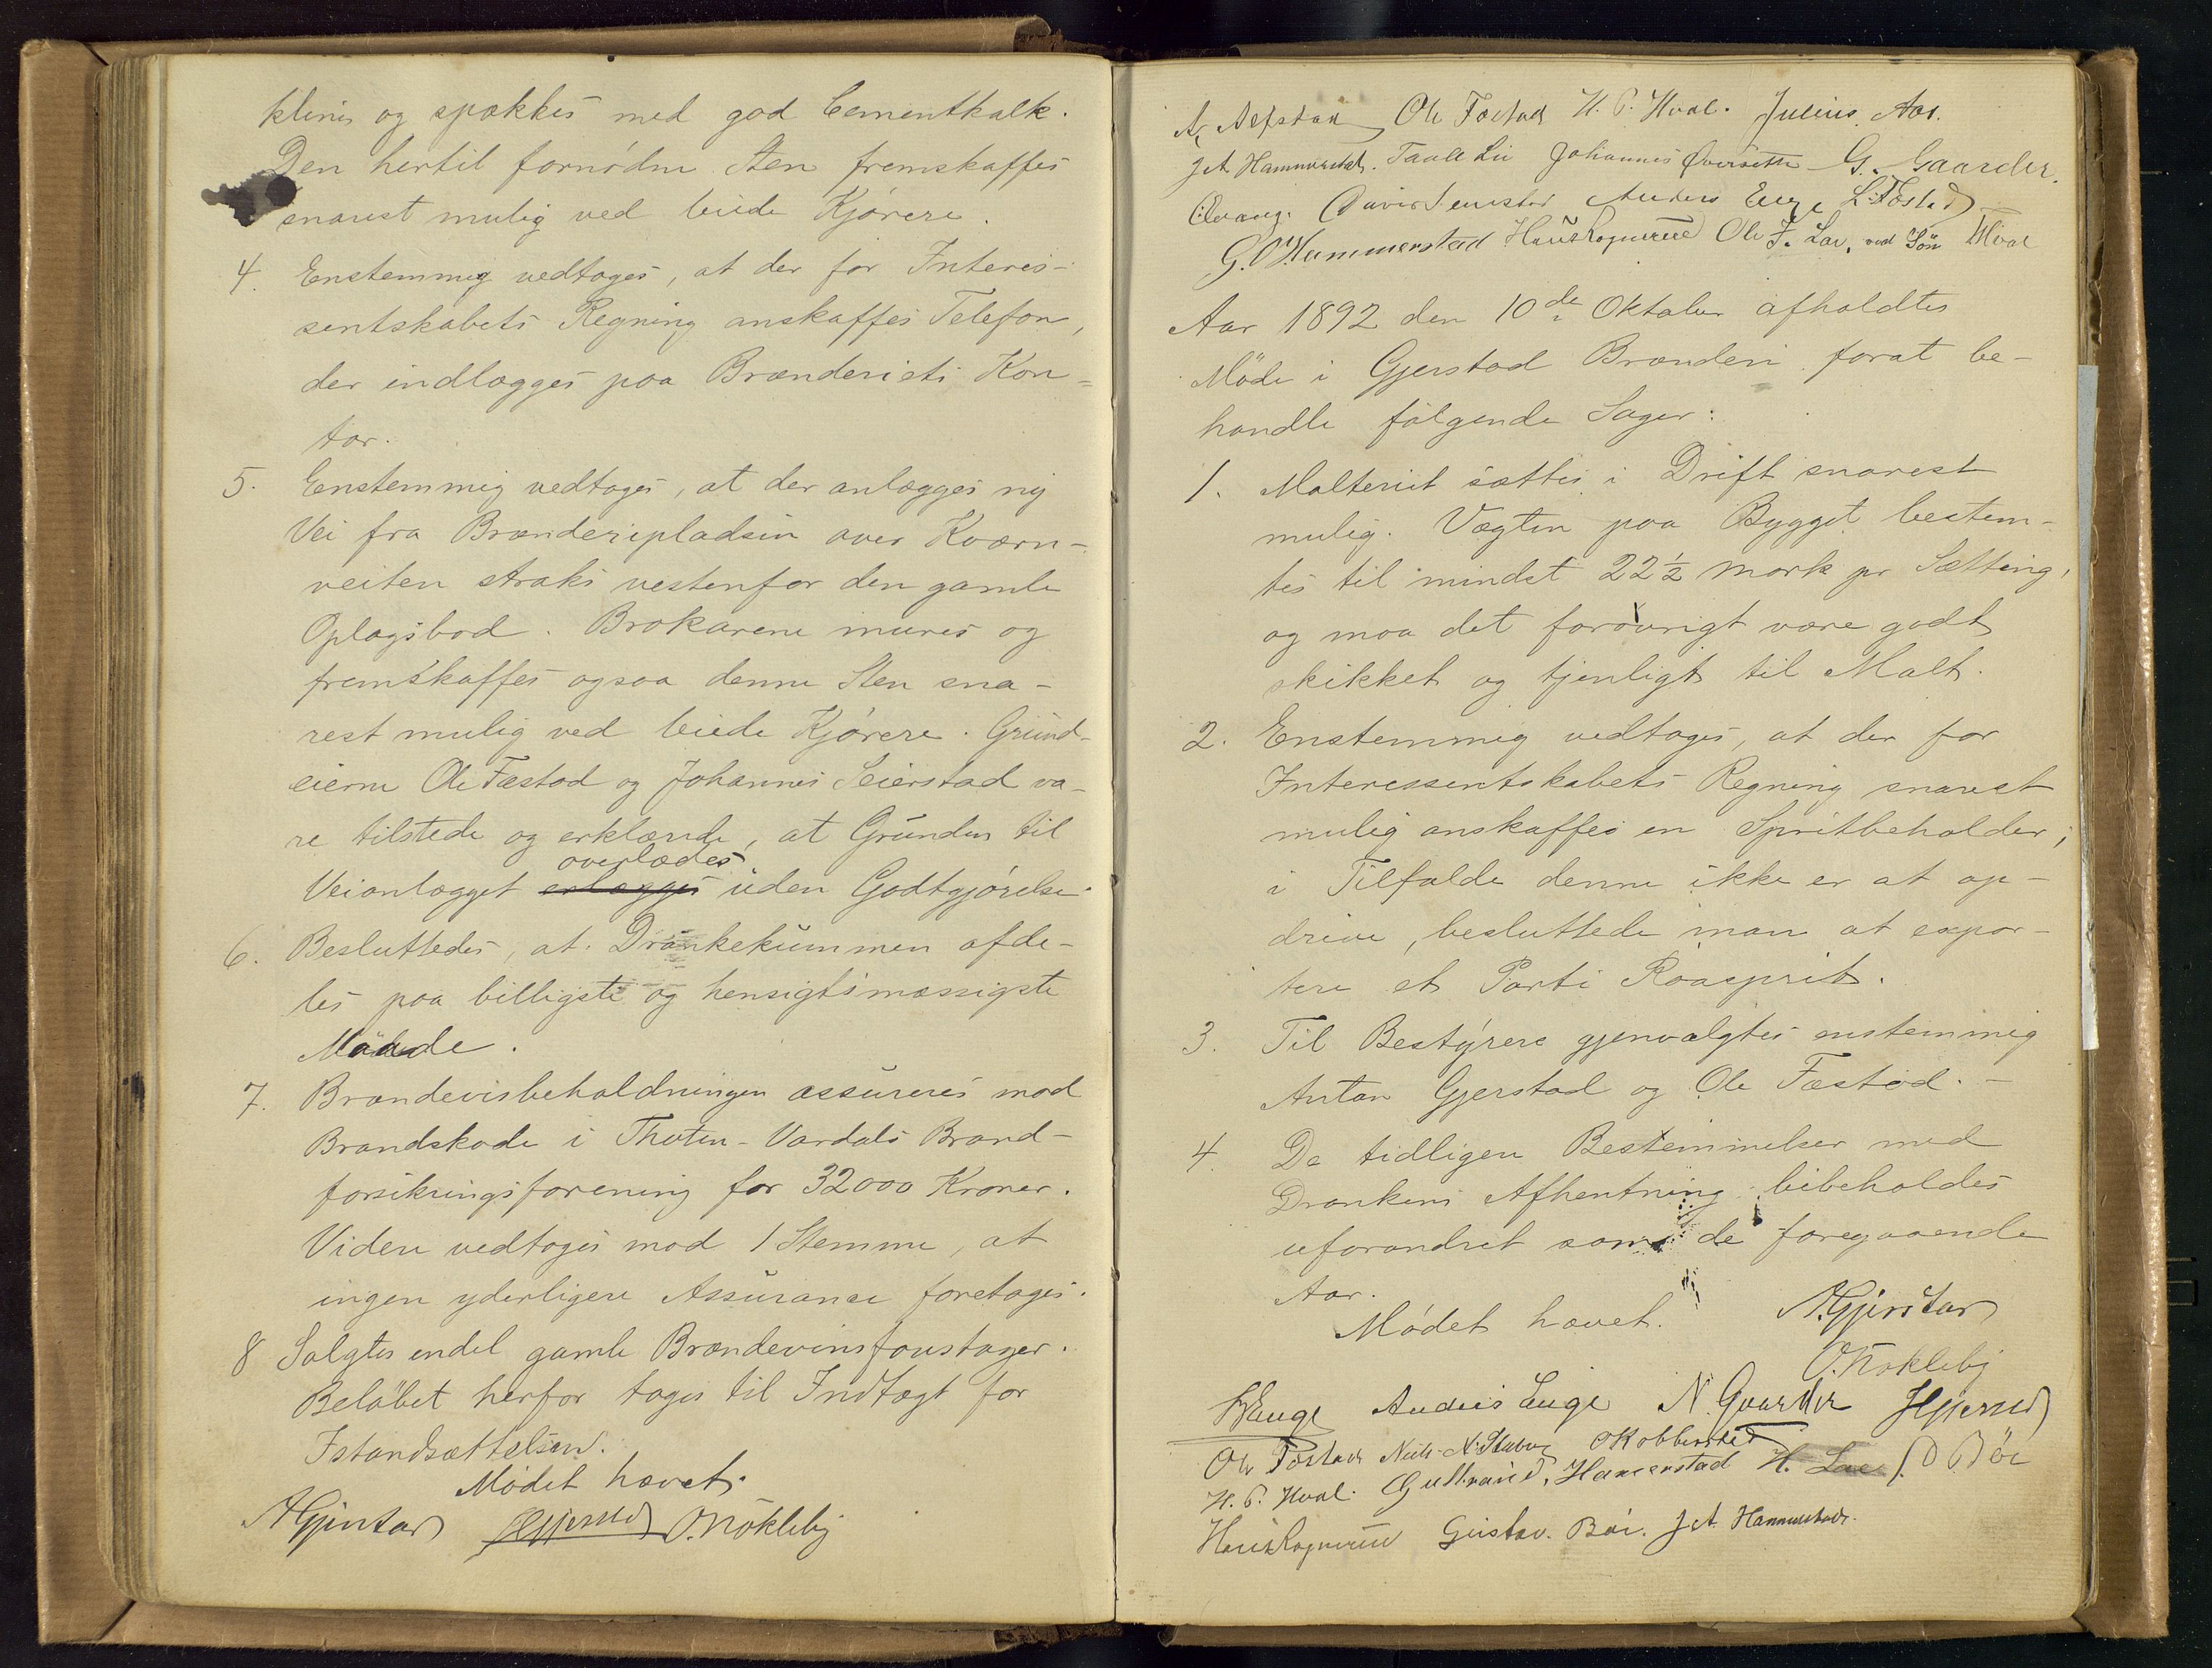 klines og spækkes med god Cementkalk.
Den hertil fornødne Sten fremskaffes
snarest mulig ved leiede Kjørere.
4. Enstemmig vedtoges, at der for Interes-
sentskabets Regning anskaffes Telefon,
der indlægges paa Brænderiets Kon-
tor.
5. Enstemmig vedtoges, at der anlægges ny
Vei fra Brænderipladsen over Kværn-
veiten straks vestenfor den gamle
Oplagsbod. Brokarene mures og
fremskaffes ogsaa denne Sten sna-
rest mulig ved leiede Kjørere. Grund-
eierne Ole Fæstad og Johannes Seierstad va-
re tilstede og erklærede, at Grunden til
overlades
Veianlægget erlægges uden Godtgjørelse.
6. Besluttedes, at Drankekummen afde-
les paa billigste og hensigtsmæssigste
Maade.
7. Brændevisbeholdningen assureres mod
Brandskade i Thoten-Vardals Brand-
forsikringsforening for 32000 Kroner.
Videre vedtoges mod 1 Stemme, at
ingen yderligere Assurance foretages.
8 Solgtes endel gamle Brændevinsfoustager.
Beløbet herfor tages til Indtægt for
Istandsættelsen.
Mødet hævet.
A Gjerstad HGjersed O. Nøkleby
A. Nefstad Ole Fæstad H. P. Hval. Julius Aas.
J A Hammerstad. Taale Lie Johannes Øversetth G. Gaarder.
Anders Enge L. Fæstad
G. O Hammerstad Hans Rognerud Ole J. Lae, ved Søn Hval
Aar 1892 den 10de Oktober afholdtes
Møde i Gjerstad Brænderi forat be-
handle følgende Sager:
1. Malteriet sættes i Drift snarest
mulig. Vægten paa Bygget bestem-
tes til mindst 22½ Mark pr Sætting,
og maa det forøvrigt være godt
skikket og tjenligt til Malt.
2. Enstemmig vedtoges, at der for
Interessentskabets Regning snarest
mulig anskaffes en Spritbeholder;
i Tilfælde denne ikke er at op-
drive, besluttede man at expor-
tere et Parti Raasprit.
3. Til Bestyrere gjenvalgtes enstemmig
Anton Gjerstad og Ole Fæstad. -
4. De tidligere Bestemmelser med
Drankens Afhentning bibeholdes
uforandret som de foregaaende
Aar.
Mødet hævet. A. Gjerstad
O. Nøkleby
H Enge Anders Enge N. Gaarder HGjersed
Ole Fæstad Niels N. Staberg O Kobberstad
H. P. Hval. Gulbrand. Hamerstad H. Lae P. Bøe
Hans Rognerud Gustav. Bøe. J A Hammerstad.